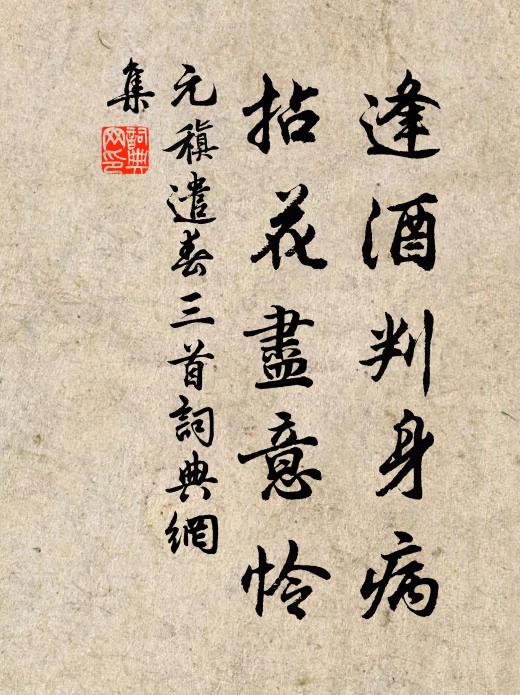 逢酒判身病
拈花盡意怜
元稹遣春三首詞典網
集
詞典網印